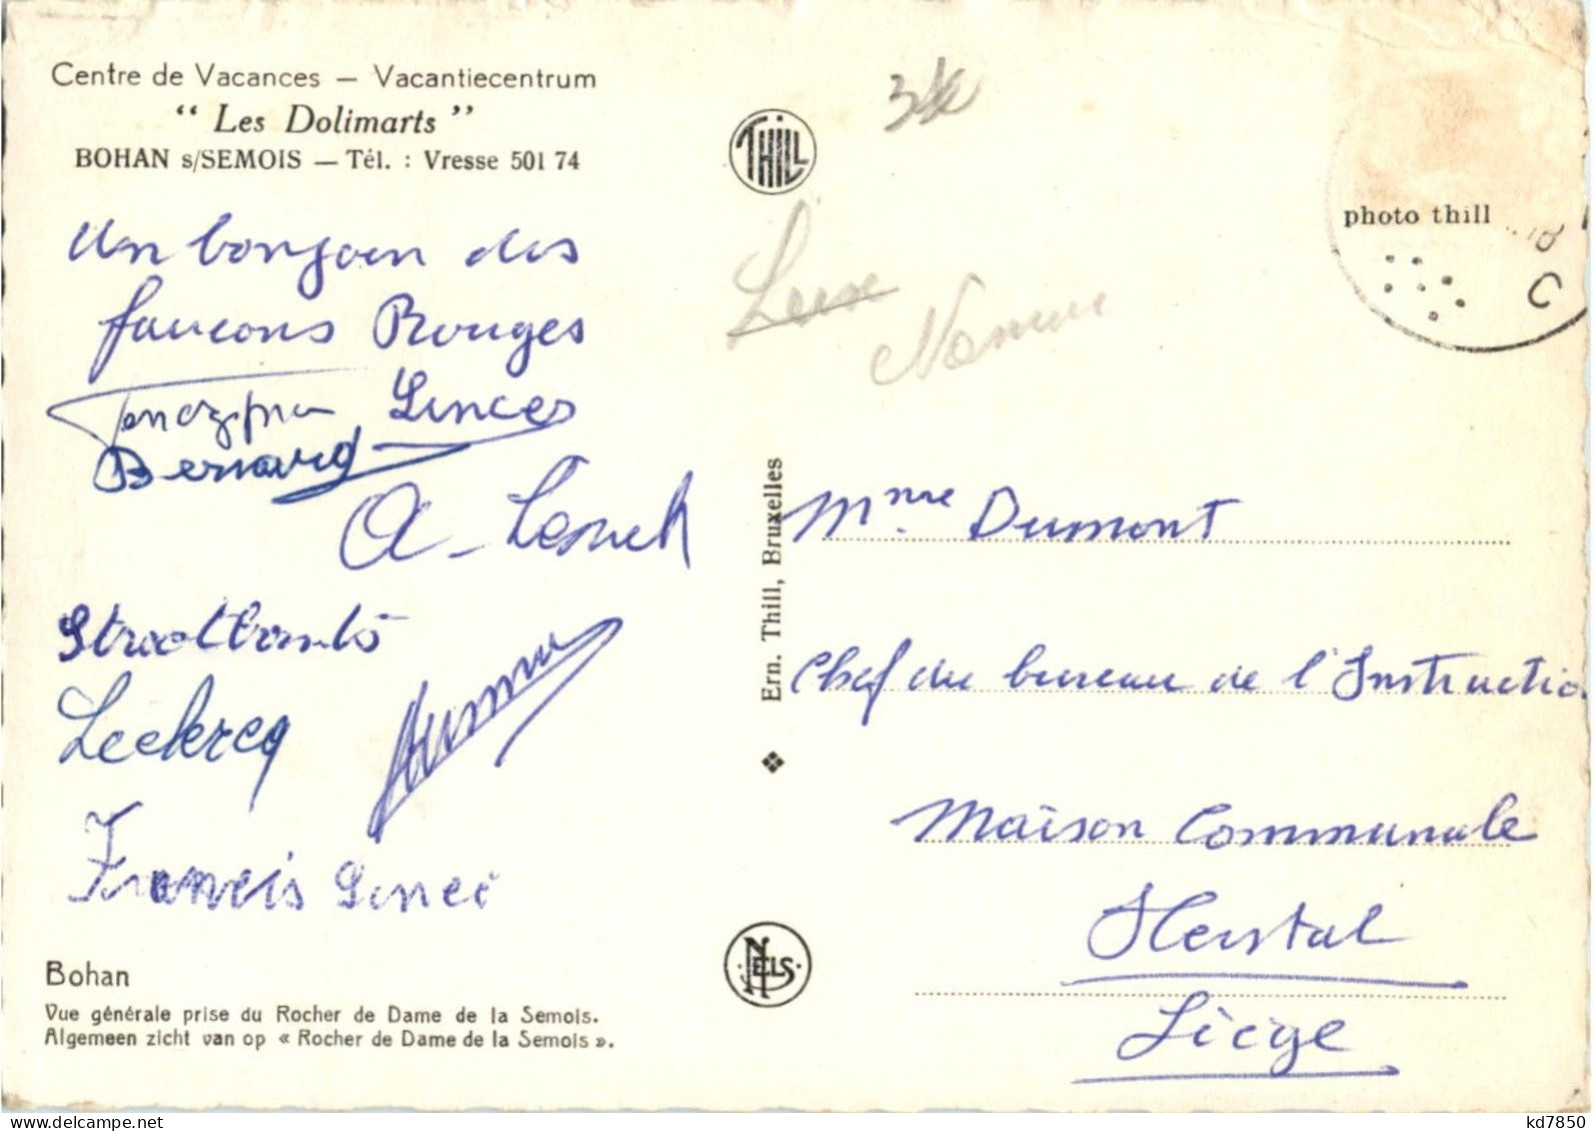 Centre de Vacances — Vacantiecentrum
“ Les Dolimarts ”
BOHAN s/SEMOIS — Tél. : Vresse 501 74
Un bonjour des
faucons Rouges
Linces
Bernard
A.
Leclercq
Francis
Bohan
Vue générale prise du Rocher de Dame de la Semois.
Algemeen zicht van op « Rocher de Dame de la Semois ».
THILL
Ern. Thill, Bruxelles
NELS
Namur
photo thill
C
Mme Dumont
Chef du bureau de l'Instructio
Maison Communale
Herstal
Liège
kd7850